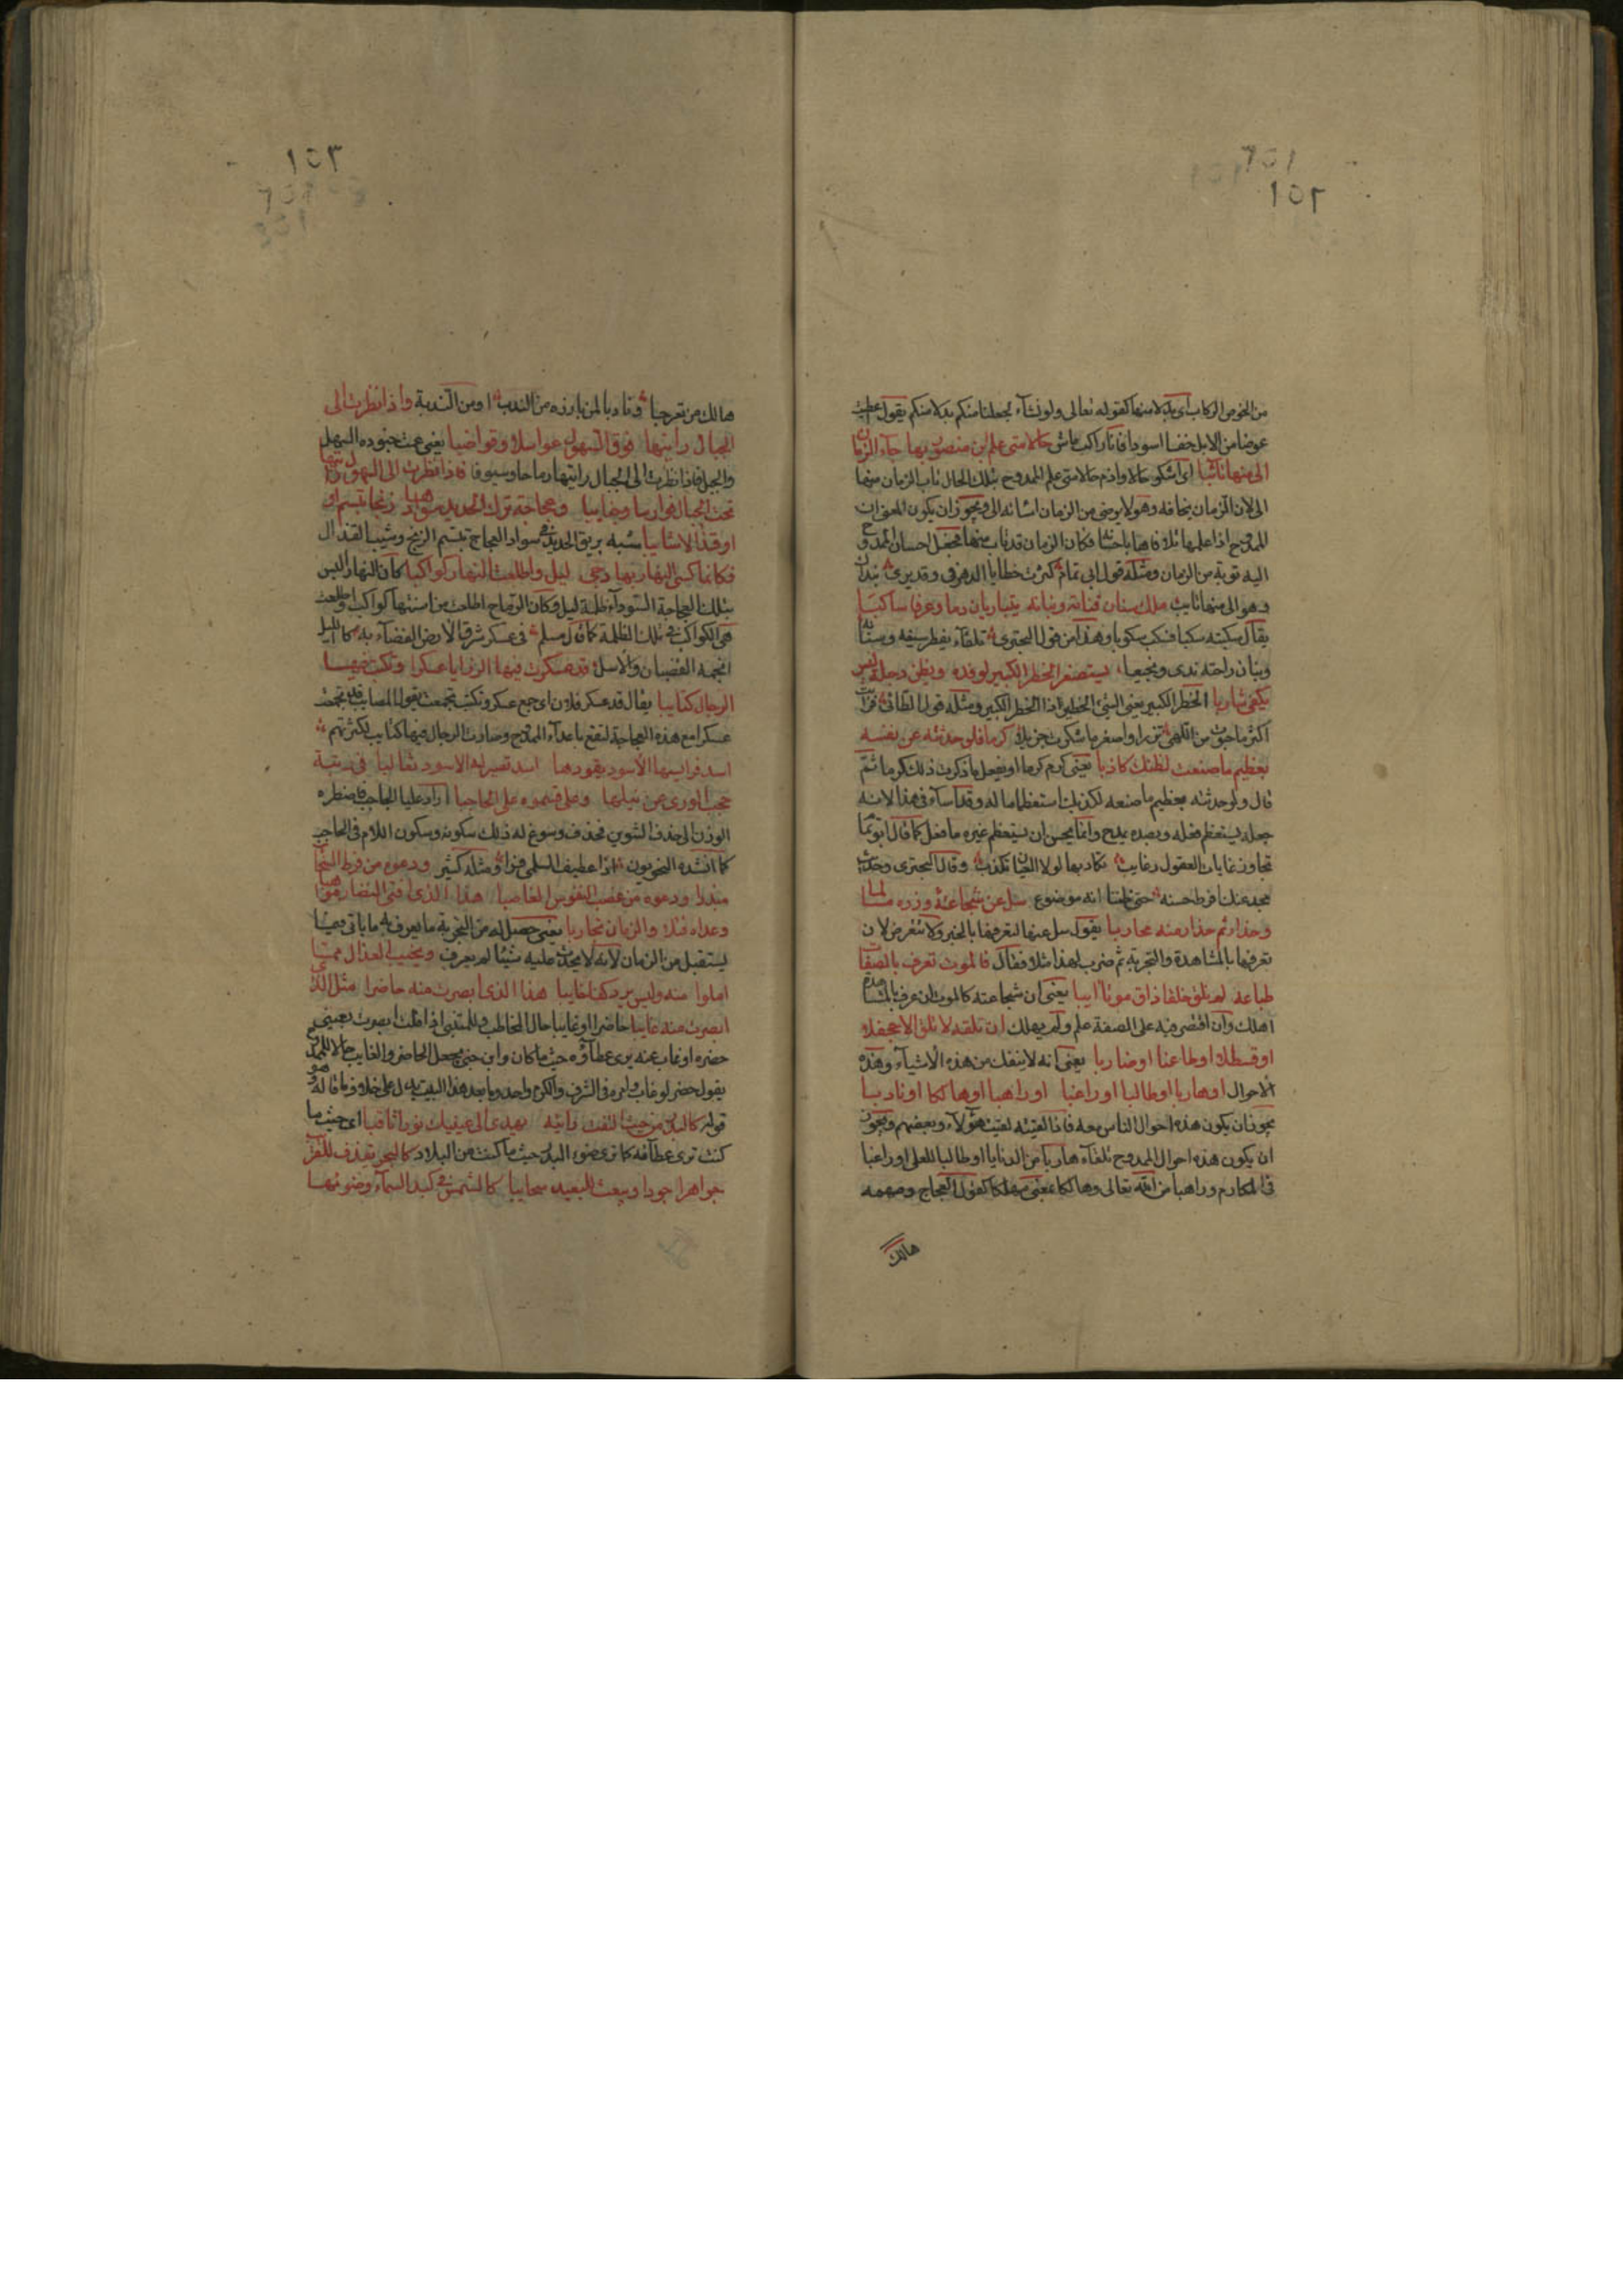 ١٥٢
من الخوص الركاب اى بدلا منها كقوله تعالى ولو نشآء لجعلنا منكم بدلا منكم يقول اعطيت
عوضا من الابل خفا اسود فانا راكب ماش حالا متى علم ابن منصور بها جآء الزمان
الى منها تائبا اى اشكو حالا واذم حالا متى علم الممدوح بتلك الحال تاب الزمان منها
الى لان الزمان يخافه وهو لا يرضى من الزمان اسائه الى ويجوز ان يكون المعنى ان
الممدوح اذا علمها تلافاها باحسانه فكان الزمان قد تاب منها فجعل احسان الممدوح
اليه توبة من الزمان ومثله قول ابى تمام كثرت خطايا الدهر فى وقد يرى بنداك
وهو الى منها تايب ملك سنان قناته وبنانه يتباريان دما وعرفا ساكبا
يقال سكبته سكبا فسكب سكوبا وهذا من قول البحترى تلقآء يقطر سيفه وسنانه
وبنان راحته ندى ونجيعا يستصغر الخطر الكبير لوفده ويظن دجلة ليس
يكفى شاربا الخطر الكبير يعنى الشئ الخطير ذا الخطر الكبير ومثله قول الطائى فرايت
اكثر ما حبوت من اللهى نزرا واصغر ما شكرت جزيلا كرما فلو حدثته عن نفسه
بعظيم ما صنعت لظنك كاذبا يعنى كرم كرما او يفعل ما ذكرت ذلك كرما ثم
قال ولو حدثته بعظيم ما صنعه لكذبك استعظاما له وقد اسآء فى هذا لانه
جعله يستعظم فعله وبضده يمدح وانما يحسن ان يستعظم غيره ما فعل كما قال ابو تمام
تجاوز غايات العقول رغايب تكاد بها لولا العيان تكذب وقال البحترى وحديث
مجد عنك افرط حسنه حتى ظننا انه موضوع سل عن شجاعته وزره مسالما
وحذار ثم حذار منه محاربا يقول سل عنها لتعرفها بالخبر ولا تتعرض لان
تعرفها بالمشاهدة والتجربة ثم ضرب لهذا مثلا فقال فالموت تعرف بالصفات
طباعه لم تلق خلقا ذاق موتا آيبا يعنى ان شجاعته كالموت ان عرف بالمشاهدة
اهلك وان اقتصر فيه على الصفة علم ولم يهلك ان تلقه لا تلق الا جحفلا
او قسطلا او طاعنا او ضاربا يعنى انه لا ينفك من هذه الاشيآء وهذه
الاحوال او هاربا او طالبا او راغبا او راهبا او هالكا او نادبا
يجوز ان يكون هذه احوال الناس معه فاذا لقيته لقيت هؤلآء وبعضهم ويجوز
ان يكون هذه احوال الممدوح تلقآء هاربا من الدنايا او طالبا للعلى او راغبا
فى المكارم وراهبا من الله تعالى وهالكا بمعنى مهلكا كقول العجاج ومهمه
هالك
١٥٣
هالك من تعرجا ونادبا لمن بارزه من الندب او من الندبة واذا نظرت الى
الجبال رايتها فوق السهول عواسلا وقواضبا يعنى عمت جنوده السهل
والجبل فاذا نظرت الى الجبال رايتها رماحا وسيوفا فاذا نظرت الى السهول رايتها
تحت الجبال فوارسا وجنايبا وعجاجة ترك الحديد سوادها زنجا تبسم او
او قذالا شايبا شبه بريق الحديد فى سواد العجاج بتبسم الزنج وشيب القذال
فكانما كسى النهار بها دجى ليل واطلعت النهار كواكبا كان النهار البس
بتلك العجاجة السودآء ظلمة ليل وكان الرماح اطلعت من اسنتها كواكب واطلعت
هى الكواكب فى تلك الظلمة كما قال مسلم فى عسكر شرق الارض الفضآء به كالليل
انجمه القضبان والاسل قد عسكرت فيها الرزايا عسكرا وتكتبت فيها
الرجال كتايبا يقال قد عسكر فلان اى جمع عسكر وتكتب تجمعت يقول المصايب قد تجمعت
عسكرا مع هذه العجاجة لتقع باعدآء الممدوح وصارت الرجال فيها كتايب لكثرتهم
اسد فرايسها الاسود يقودها اسد تصير له الاسود ثعالبا فى رتبة
حجب الورى عن نيلها وعلى فسموه على الحاجبا اراد عليا الحاجب فاضطره
الوزن الى حذف التنوين فحذف وسوغ له ذلك سكونه وسكون اللام فى الحاجب
كما انشده النحويون اذا عطيف السلمى فرا ومثله كثير ودعوه من فرط السخآ
مبذرا ودعوه من غصب النفوس الغاصبا هذا الذى افنى النضار مواهبا
وعداه قتلا والزمان تجاربا يعنى حصل له من التجربة ما يعرف به ما ياتى فيما
يستقبل من الزمان لانه لا يحدث عليه شيئا لم يعرف ومخيب العذال مما
املوا منه وليس يرد كفا خايبا هذا الذى ابصرت منه حاضرا مثل الذى
ابصرت منه غايبا حاضرا او غايبا حالا للمخاطب وللمتنبى اذا قلت ابصرت يعنى
حضره او غاب عنه يرى عطآؤه حيث ما كان وابن جنى يجعل الحاضر والغايب حالا للممدوح
يقول حضر او غاب فامره فى الشرف والكرم واحد وما بعد هذا البيت يدل على خلاف ما قاله وهو
قوله كالبدر من حيث التفت رايته يهدى الى عينيك نورا ثاقبا اى حيث ما
كنت ترى عطآءه كما ترى ضوء البدر حيث ما كنت من البلاد كالبحر يقذف للقريب
جواهرا جودا ويبعث للبعيد سحايبا كالشمس فى كبد السمآء وضوئها